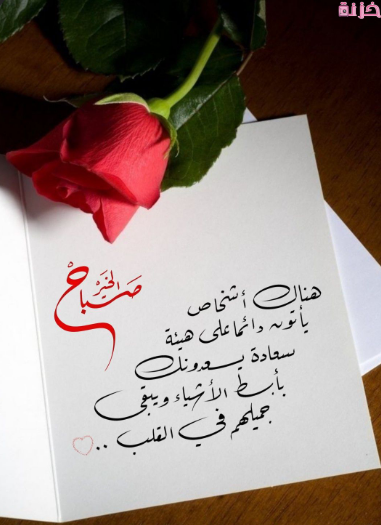 خزنة
صباح الخير
هناك أشخاص
يأتون دائما على هيئة
سعادة يسعدونك
بأبسط الأشياء ويبقى
جميلهم في القلب ..